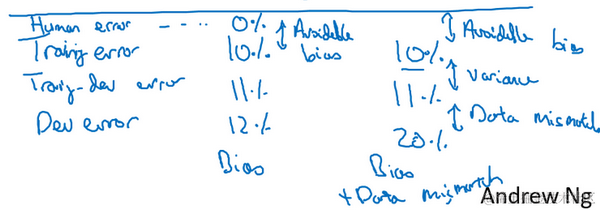 Human error ---- 0% ↕ Avoidable bias ↕ Avoidable bias
Training error 10% 10%
↕ Variance
Training-dev error 11% 11%
↕ Data mismatch
Dev error 12% 20%
Bias Bias
+ Data mismatch
Andrew Ng